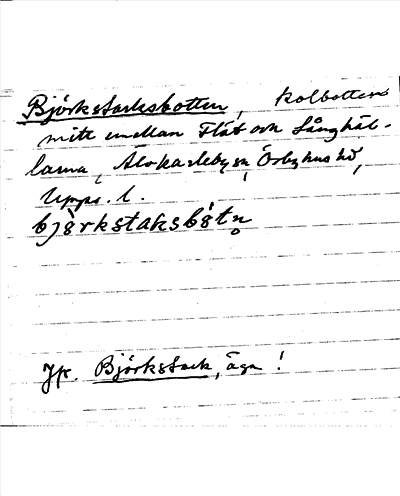 Björkstacksbotten, kolbotten
mitt emellan Flåt och Långhäl-
larna, Älvkarleby sn, Örbyhus hd,
Upps. l.
bjə̀rkstaksbót̥n̥
Jfr. Björkstack, äga!